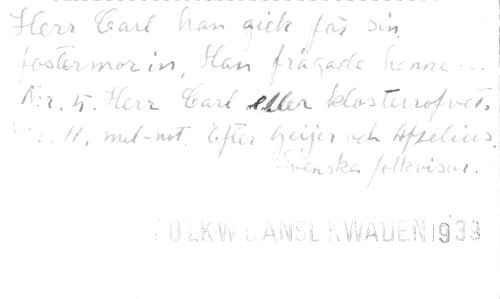 Herr Carl han gick för sin
fostermor in, Han frågade henne...
N:r. 5. Herr Carl eller klosterrofvet.
S. 11. mel-not. Efter Geijer och Afzelius.
Svenska folkvisor.
FOLKW DANSL KWÄDEN 1939